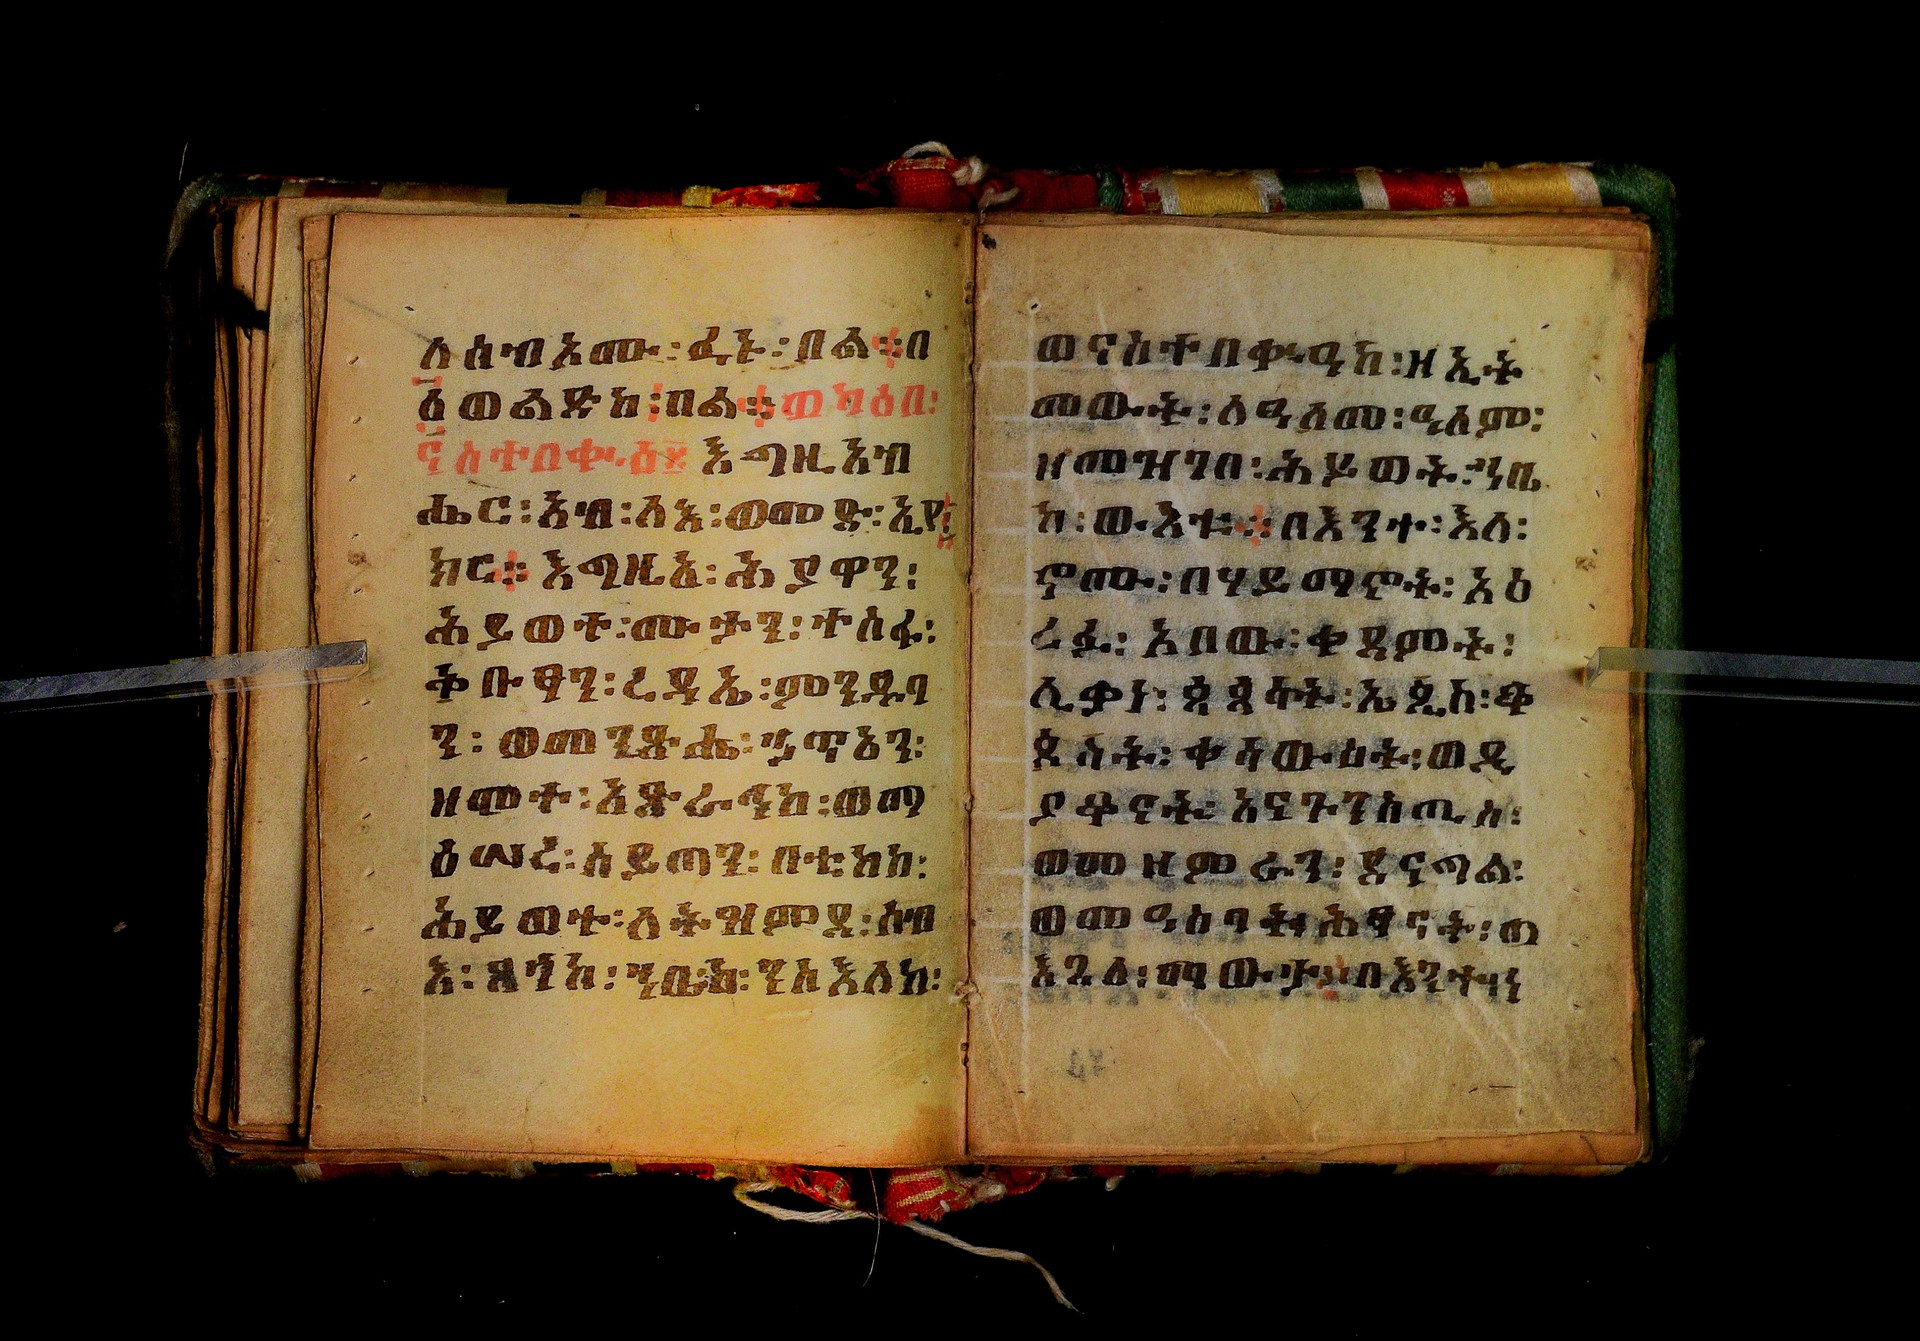 ለስብአሙ፡ፈኑ፡በል፡፡በ
፩ወልድከ፡በል፡፡ወካዕበ፡
ናስተበቍዕ፡ እግዚአብ
ሔር፡አብ፡ለእ፡ወመድ፡ኢየ
ክር፡፡እግዚእ፡ሕያዋን፡
ሕይወተ፡ሙታን፡ተስፋ፡
ቅቡፃን፡ረዳኤ፡ምንዱባ
ን፡ወመንጽሔ፡ኃጥአን፡
ዘመተ፡አጽራሪከ፡ወማ
ዕሠረ፡ሰይጣን፡በቲ፡ከከ፡
ሕይወተ፡ለትዝምደ፡ሰብ
እ፡ጸጋከ፡ንጼሊ፡ንስእለከ፡
ወናስተበቍዓከ፡ዘኢት
መውት፡ለዓለመ፡ዓለም፡
ዘመዝገበ፡ሕይወት፡ኀቤ
ከ፡ውእቱ፡፡በእንተ፡እለ፡
ኖሙ፡በሃይማኖት፡አዕ
ርፉ፡አበው፡ቀደምት፡
ሊቃነ፡ጳጳሳት፡ኤጲስ፡ቆ
ጶሳት፡ቀሳውስት፡ወዲ
ያቆናት፡አናጕንስጢስ፡
ወመዘምራን፡ደናግል፡
ወመዓስባት፡ሕፃናት፡ወ
እጓለ፡ማውታ፡በእንተ፡ነ